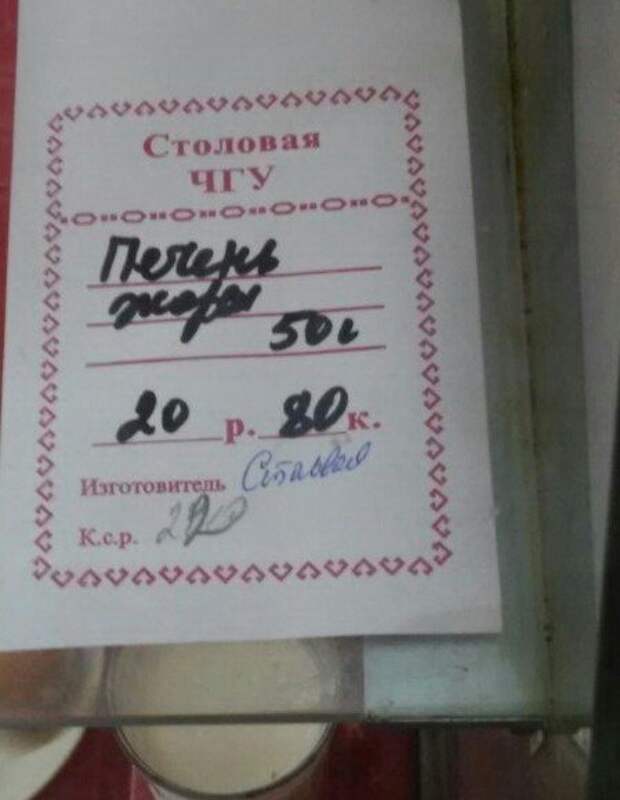 Столовая
ЧГУ
Печень
жарен
50г
20 р. 80 к.
Изготовитель Столовая
К.с.р.